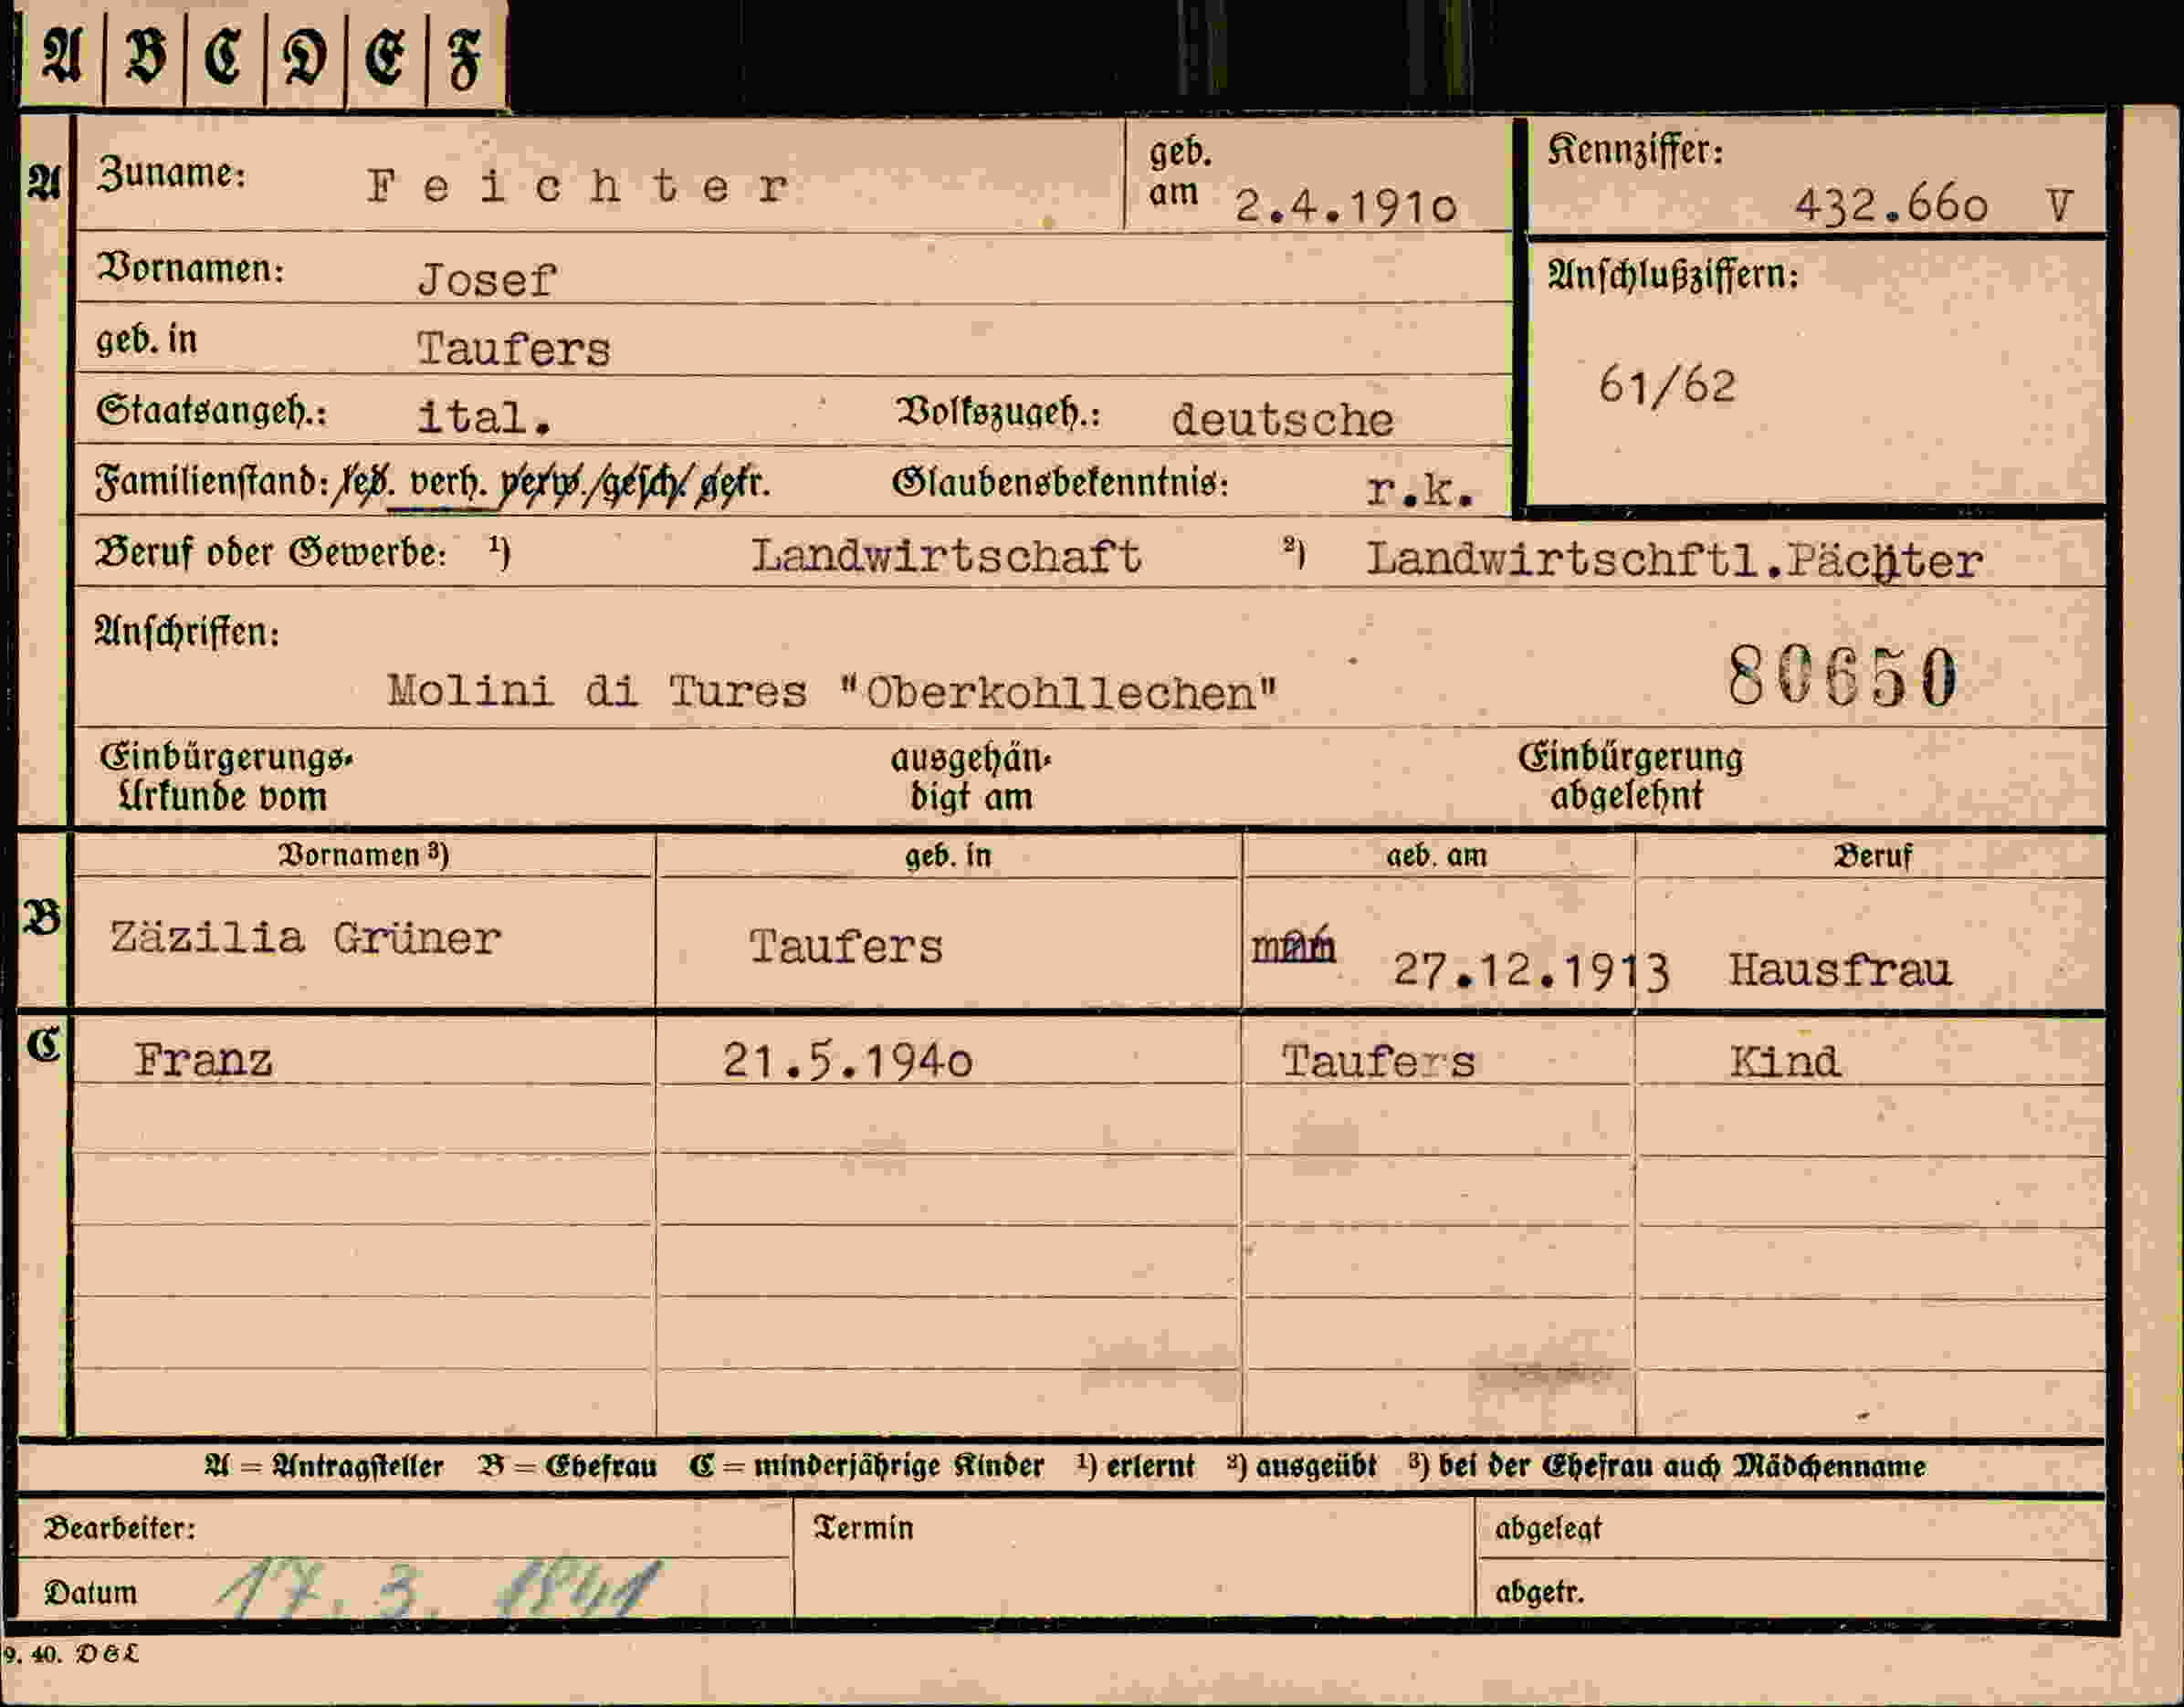 A B C D E F
A Zuname: Feichter geb. am 2.4.1910 Kennziffer: 432.660 V
Vornamen: Josef Anschlußziffern:
geb. in Taufers 61/62
Staatsangeh.: ital. Volkszugeh.: deutsche
Familienstand: led. verh. verw. gesch. getr. Glaubensbekenntnis: r.k.
Beruf oder Gewerbe: ¹) Landwirtschaft ²) Landwirtschftl.Pächter
Anschriften:
Molini di Tures "Oberkohllechen" 80650
Einbürgerungs- ausgehän- Einbürgerung
Urkunde vom digt am abgelehnt
Vornamen ³) geb. in geb. am Beruf
B Zäzilia Grüner Taufers 27.12.1913 Hausfrau
C Franz 21.5.1940 Taufers Kind
A = Antragsteller B = Ehefrau C = minderjährige Kinder ¹) erlernt ²) ausgeübt ³) bei der Ehefrau auch Mädchenname
Bearbeiter: Termin abgelegt
Datum 17. 3. 1941 abgetr.
9. 40. DEL